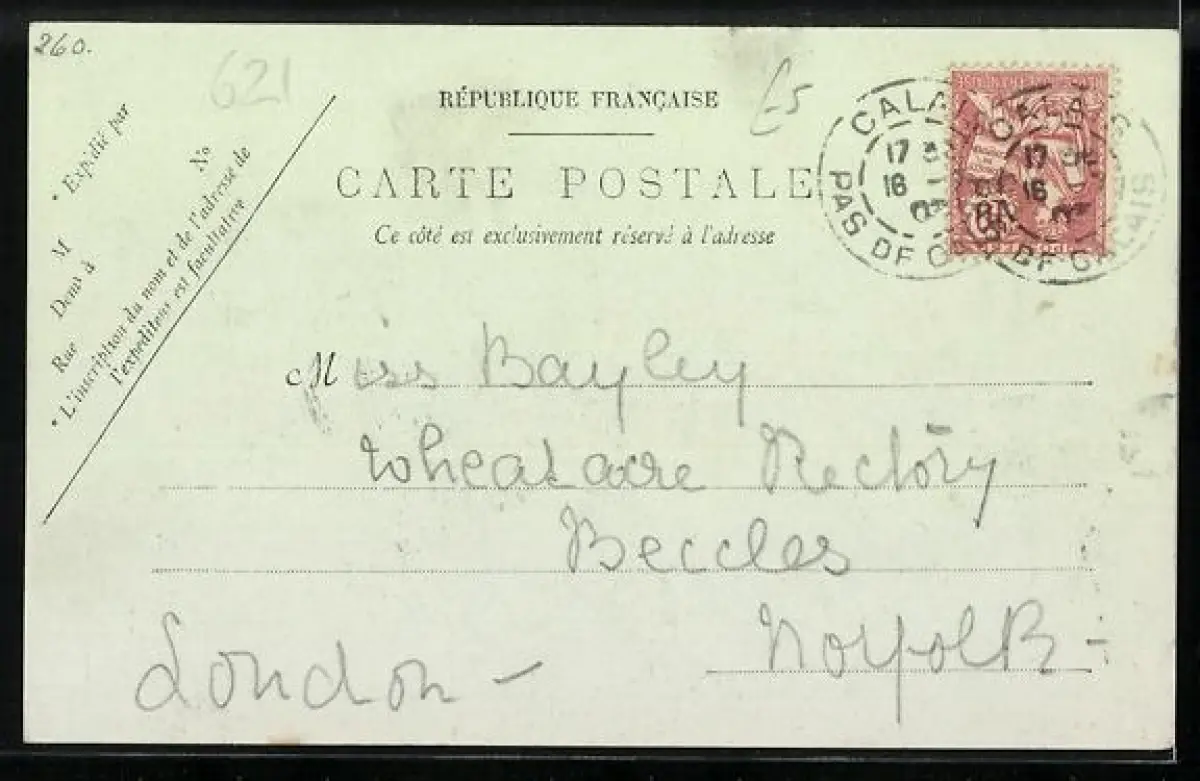 260.
621
£5
RÉPUBLIQUE FRANÇAISE
CARTE POSTALE
Ce côté est exclusivement réservé à l'adresse
* Expédié par
M
Demt à
Rue
No
* L'inscription du nom et de l'adresse de
l'expéditeur est facultative
CALAIS
17
16
PAS DE CALAIS
CALAIS
17
16
PAS DE CALAIS
Miss Bayley
Wheatacre Rectory
Beccles
Norfolk -
London -